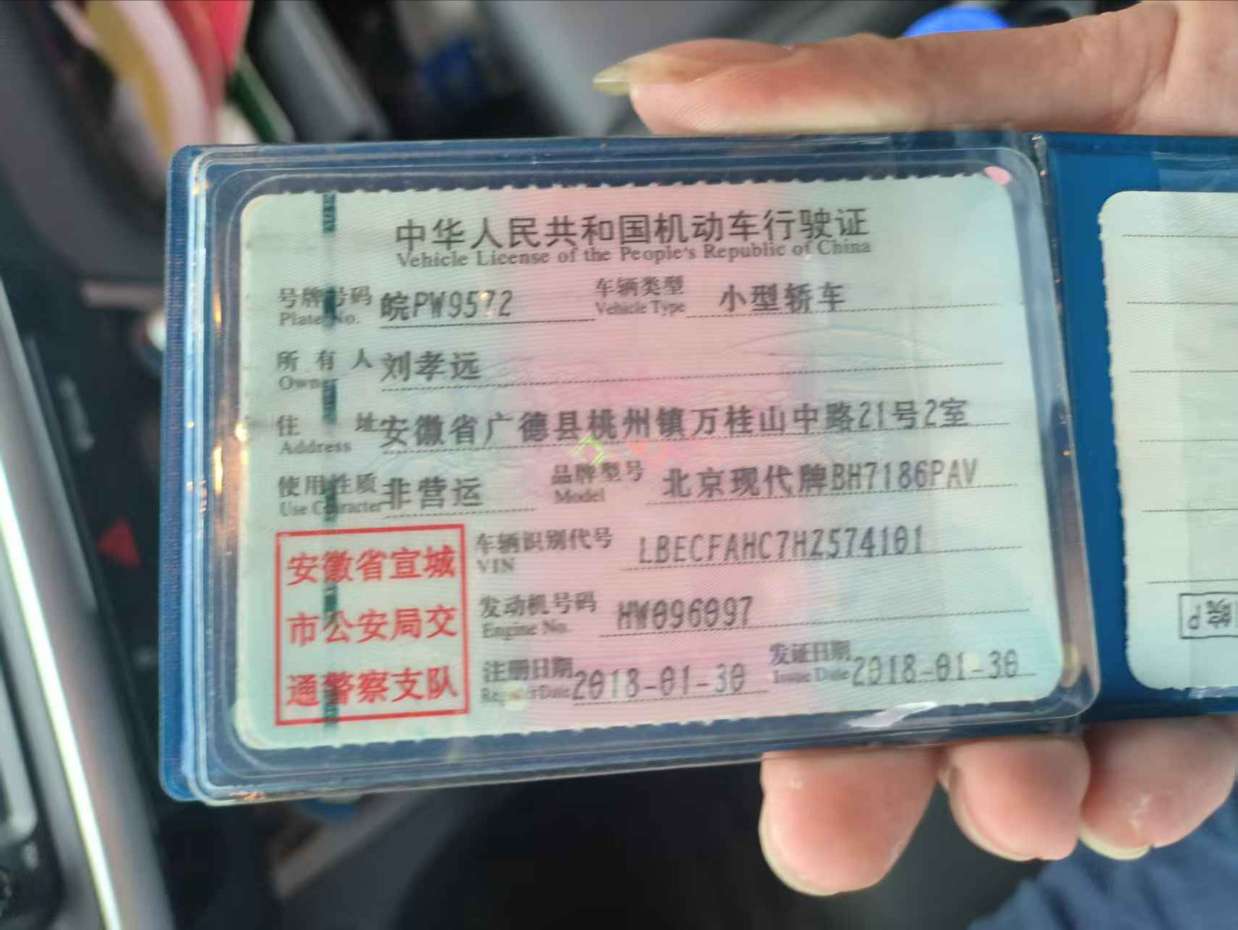 中华人民共和国机动车行驶证
Vehicle License of the People's Republic of China
号牌号码 皖PW9572 车辆类型 小型轿车
Plate No. Vehicle Type
所有人 刘孝远
Owner
住址 安徽省广德县桃州镇万桂山中路21号2室
Address
使用性质 非营运 品牌型号 北京现代牌BH7186PAV
Use Character Model
安徽省宣城
市公安局交
通警察支队
车辆识别代号 LBECFAHC7HZ574101
VIN
发动机号码 HW096097
Engine No.
注册日期 2018-01-30 发证日期 2018-01-30
Register Date Issue Date
皖P